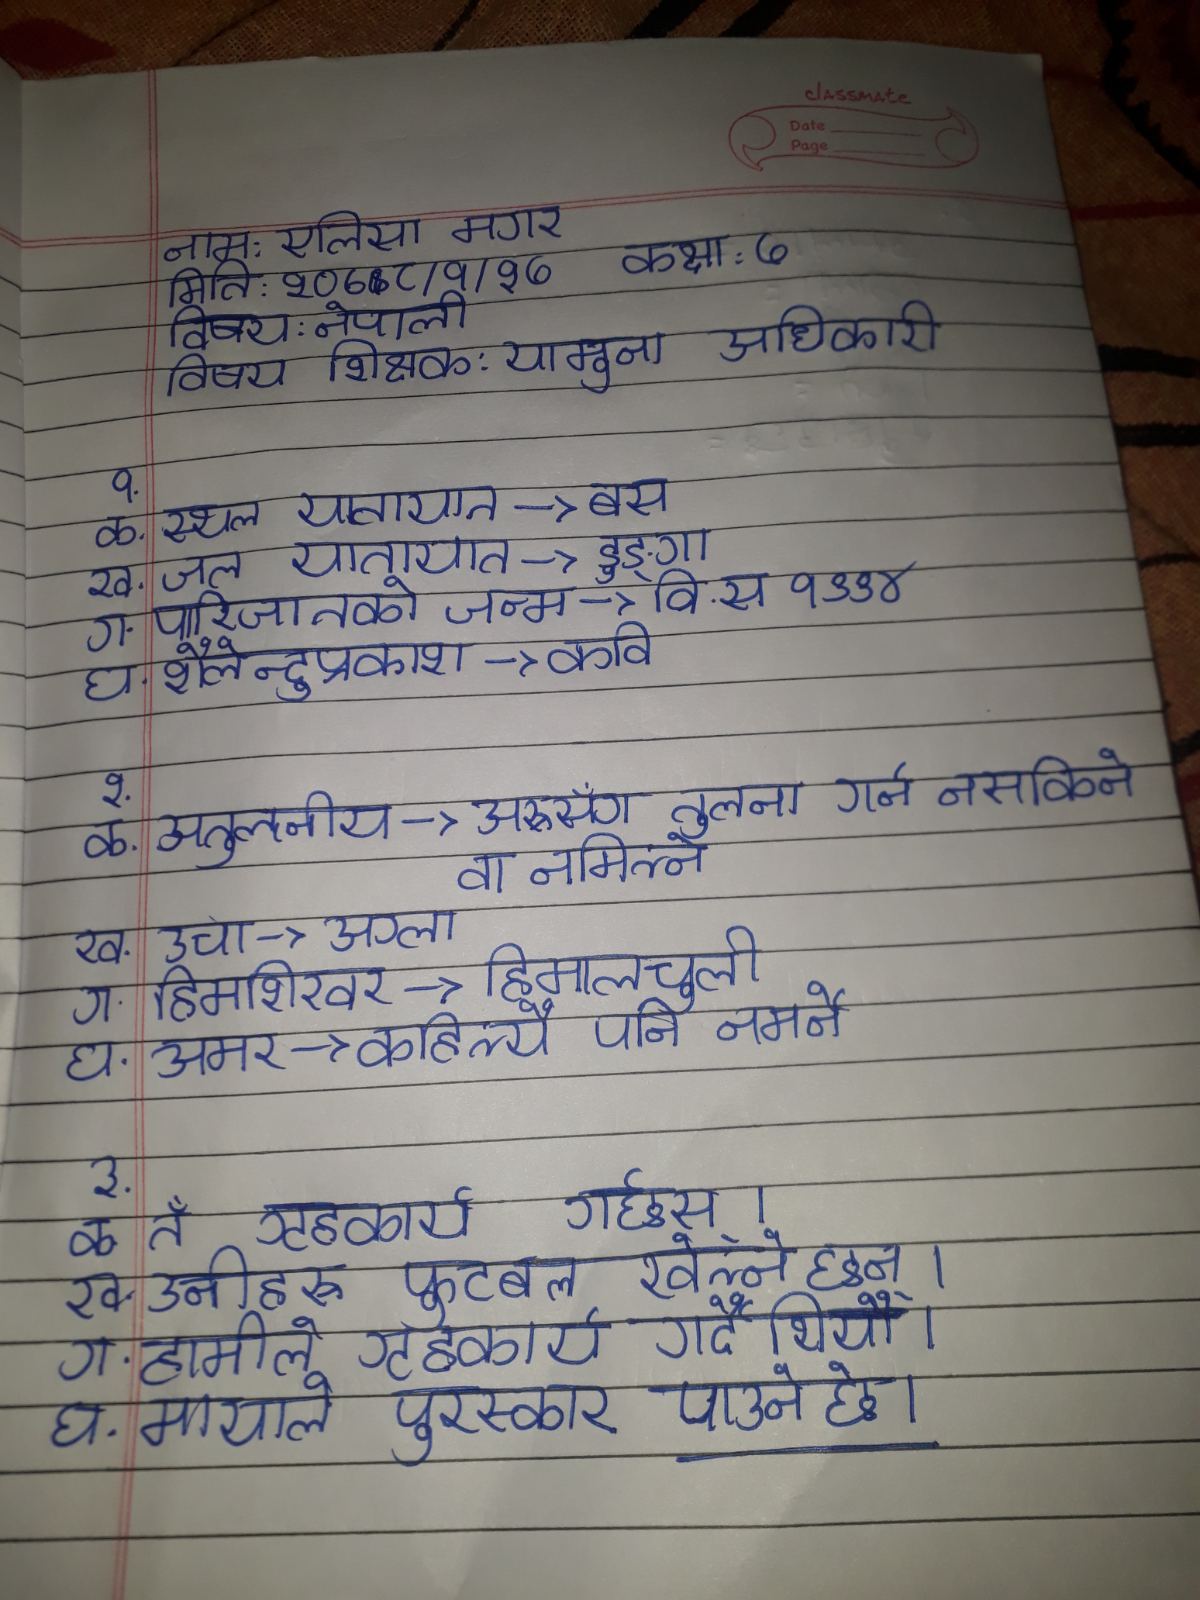 classmate
Date
Page
नाम: एलिसा मगर
मिति: २०७८/१/२७ कक्षा: ७
विषय: नेपाली
विषय शिक्षक: यामुना अधिकारी
१.
क. स्थल यातायात → बस
ख. जल यातायात → डुङ्गा
ग. पारिजातको जन्म → वि.स १९९४
घ. शैलेन्दुप्रकाश → कवि
२.
क. अतुलनीय → अरूसँग तुलना गर्न नसकिने
वा नमिल्ने
ख. उचा → अग्ला
ग. हिमशिखर → हिमालचुली
घ. अमर → कहिल्यै पनि नमर्ने
३.
क तँ गृहकार्य गर्छस् ।
ख. उनीहरू फुटबल खेल्ने छन् ।
ग. हामीले गृहकार्य गर्दै थियौं ।
घ. मायाले पुरस्कार पाउने छे ।